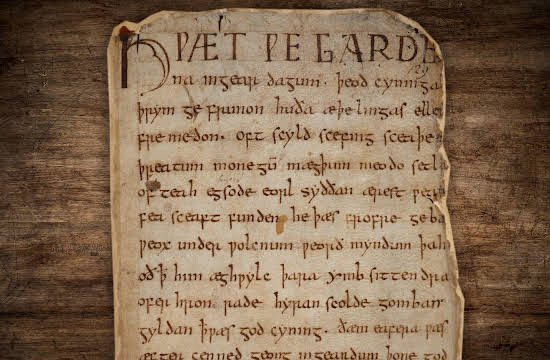 HǷÆT ǷE GARDE
na ingear dagum · þeod cyninga
þrym ge frunon huða æþelingas elle
fremedon · oft scyld scefing sceaþe
þreatum monegū mægþum meodo setla
of teah egsode eorl syððan ærest ƿear
fea sceaft funden he þæs frofre geba
ƿeox under ƿolcnum ƿeorð myndum þah
oð ꝥ him æghƿylc þara ymb sittendra
ofer hron rade hyran scolde gomban
gyldan ꝥ ƿæs god cyning · ðæm eafera ƿæs
æfter cenned geong in geardum þone god